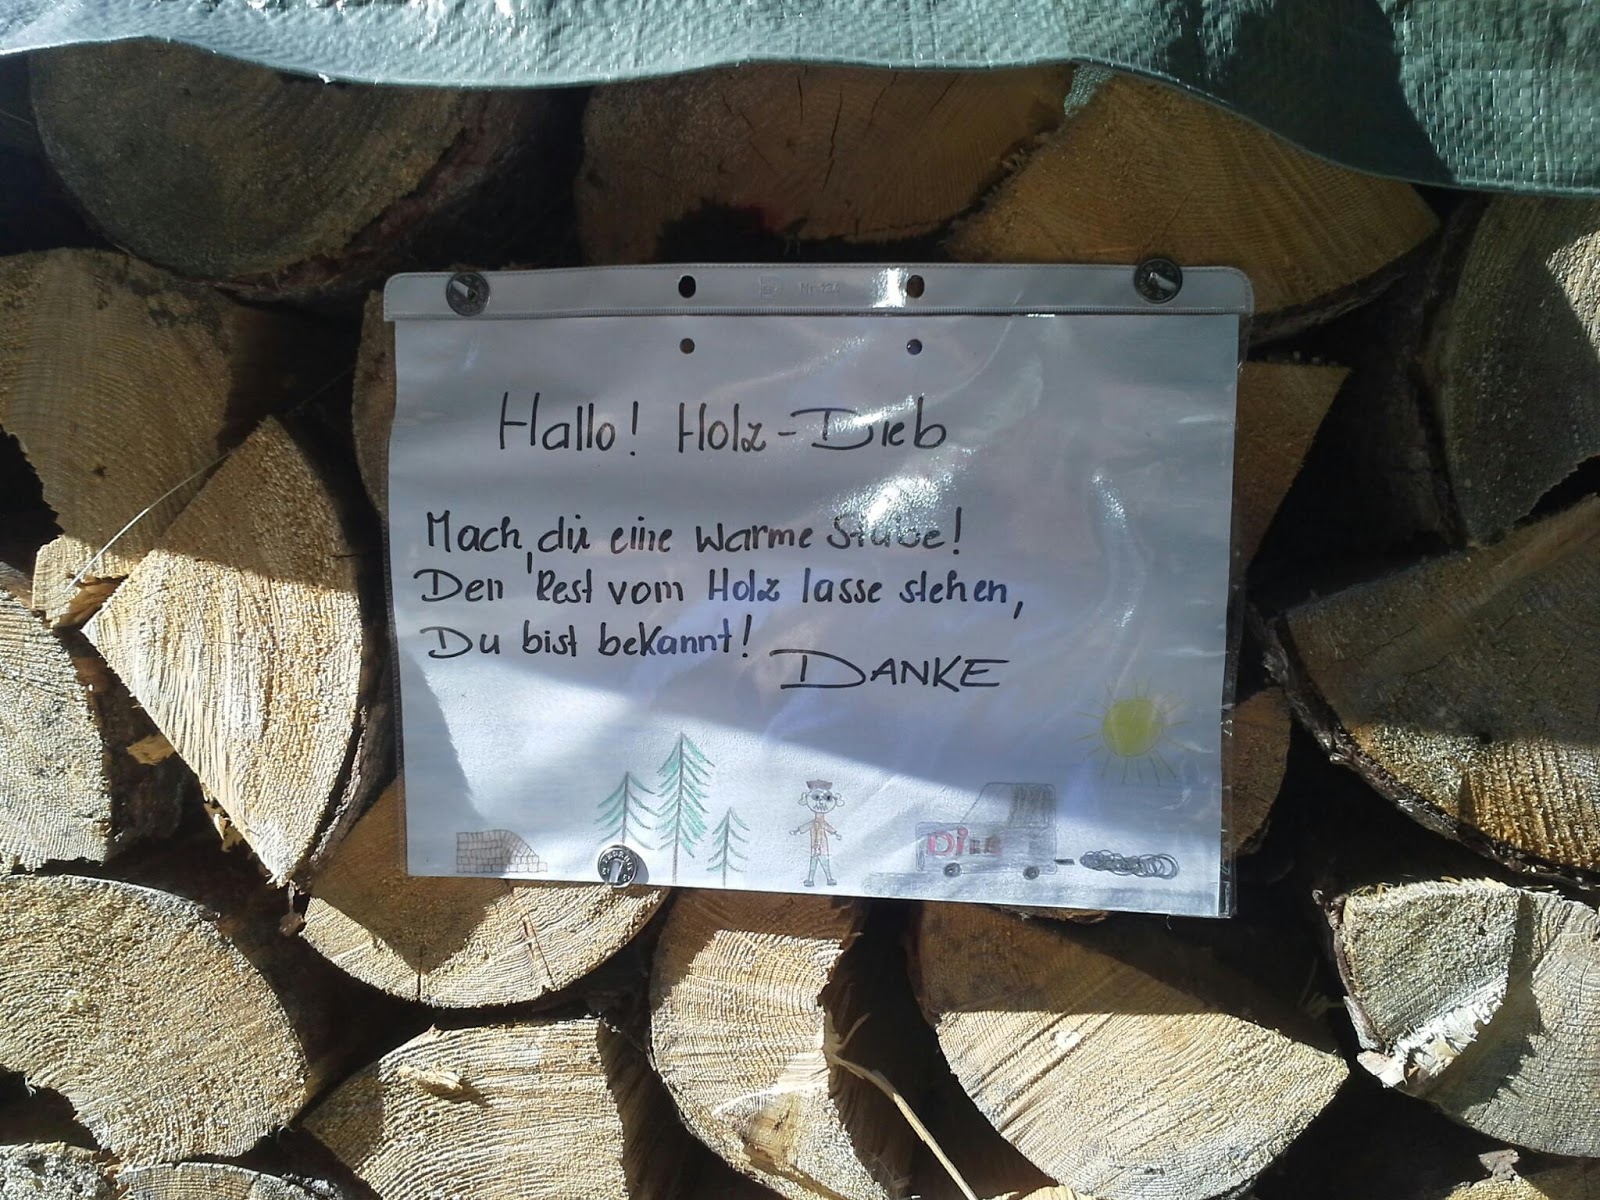 Hallo! Holz-Dieb
Mach, dir eine warme Stube!
Den Rest vom Holz lasse stehen,
Du bist bekannt!
DANKE
DiEB